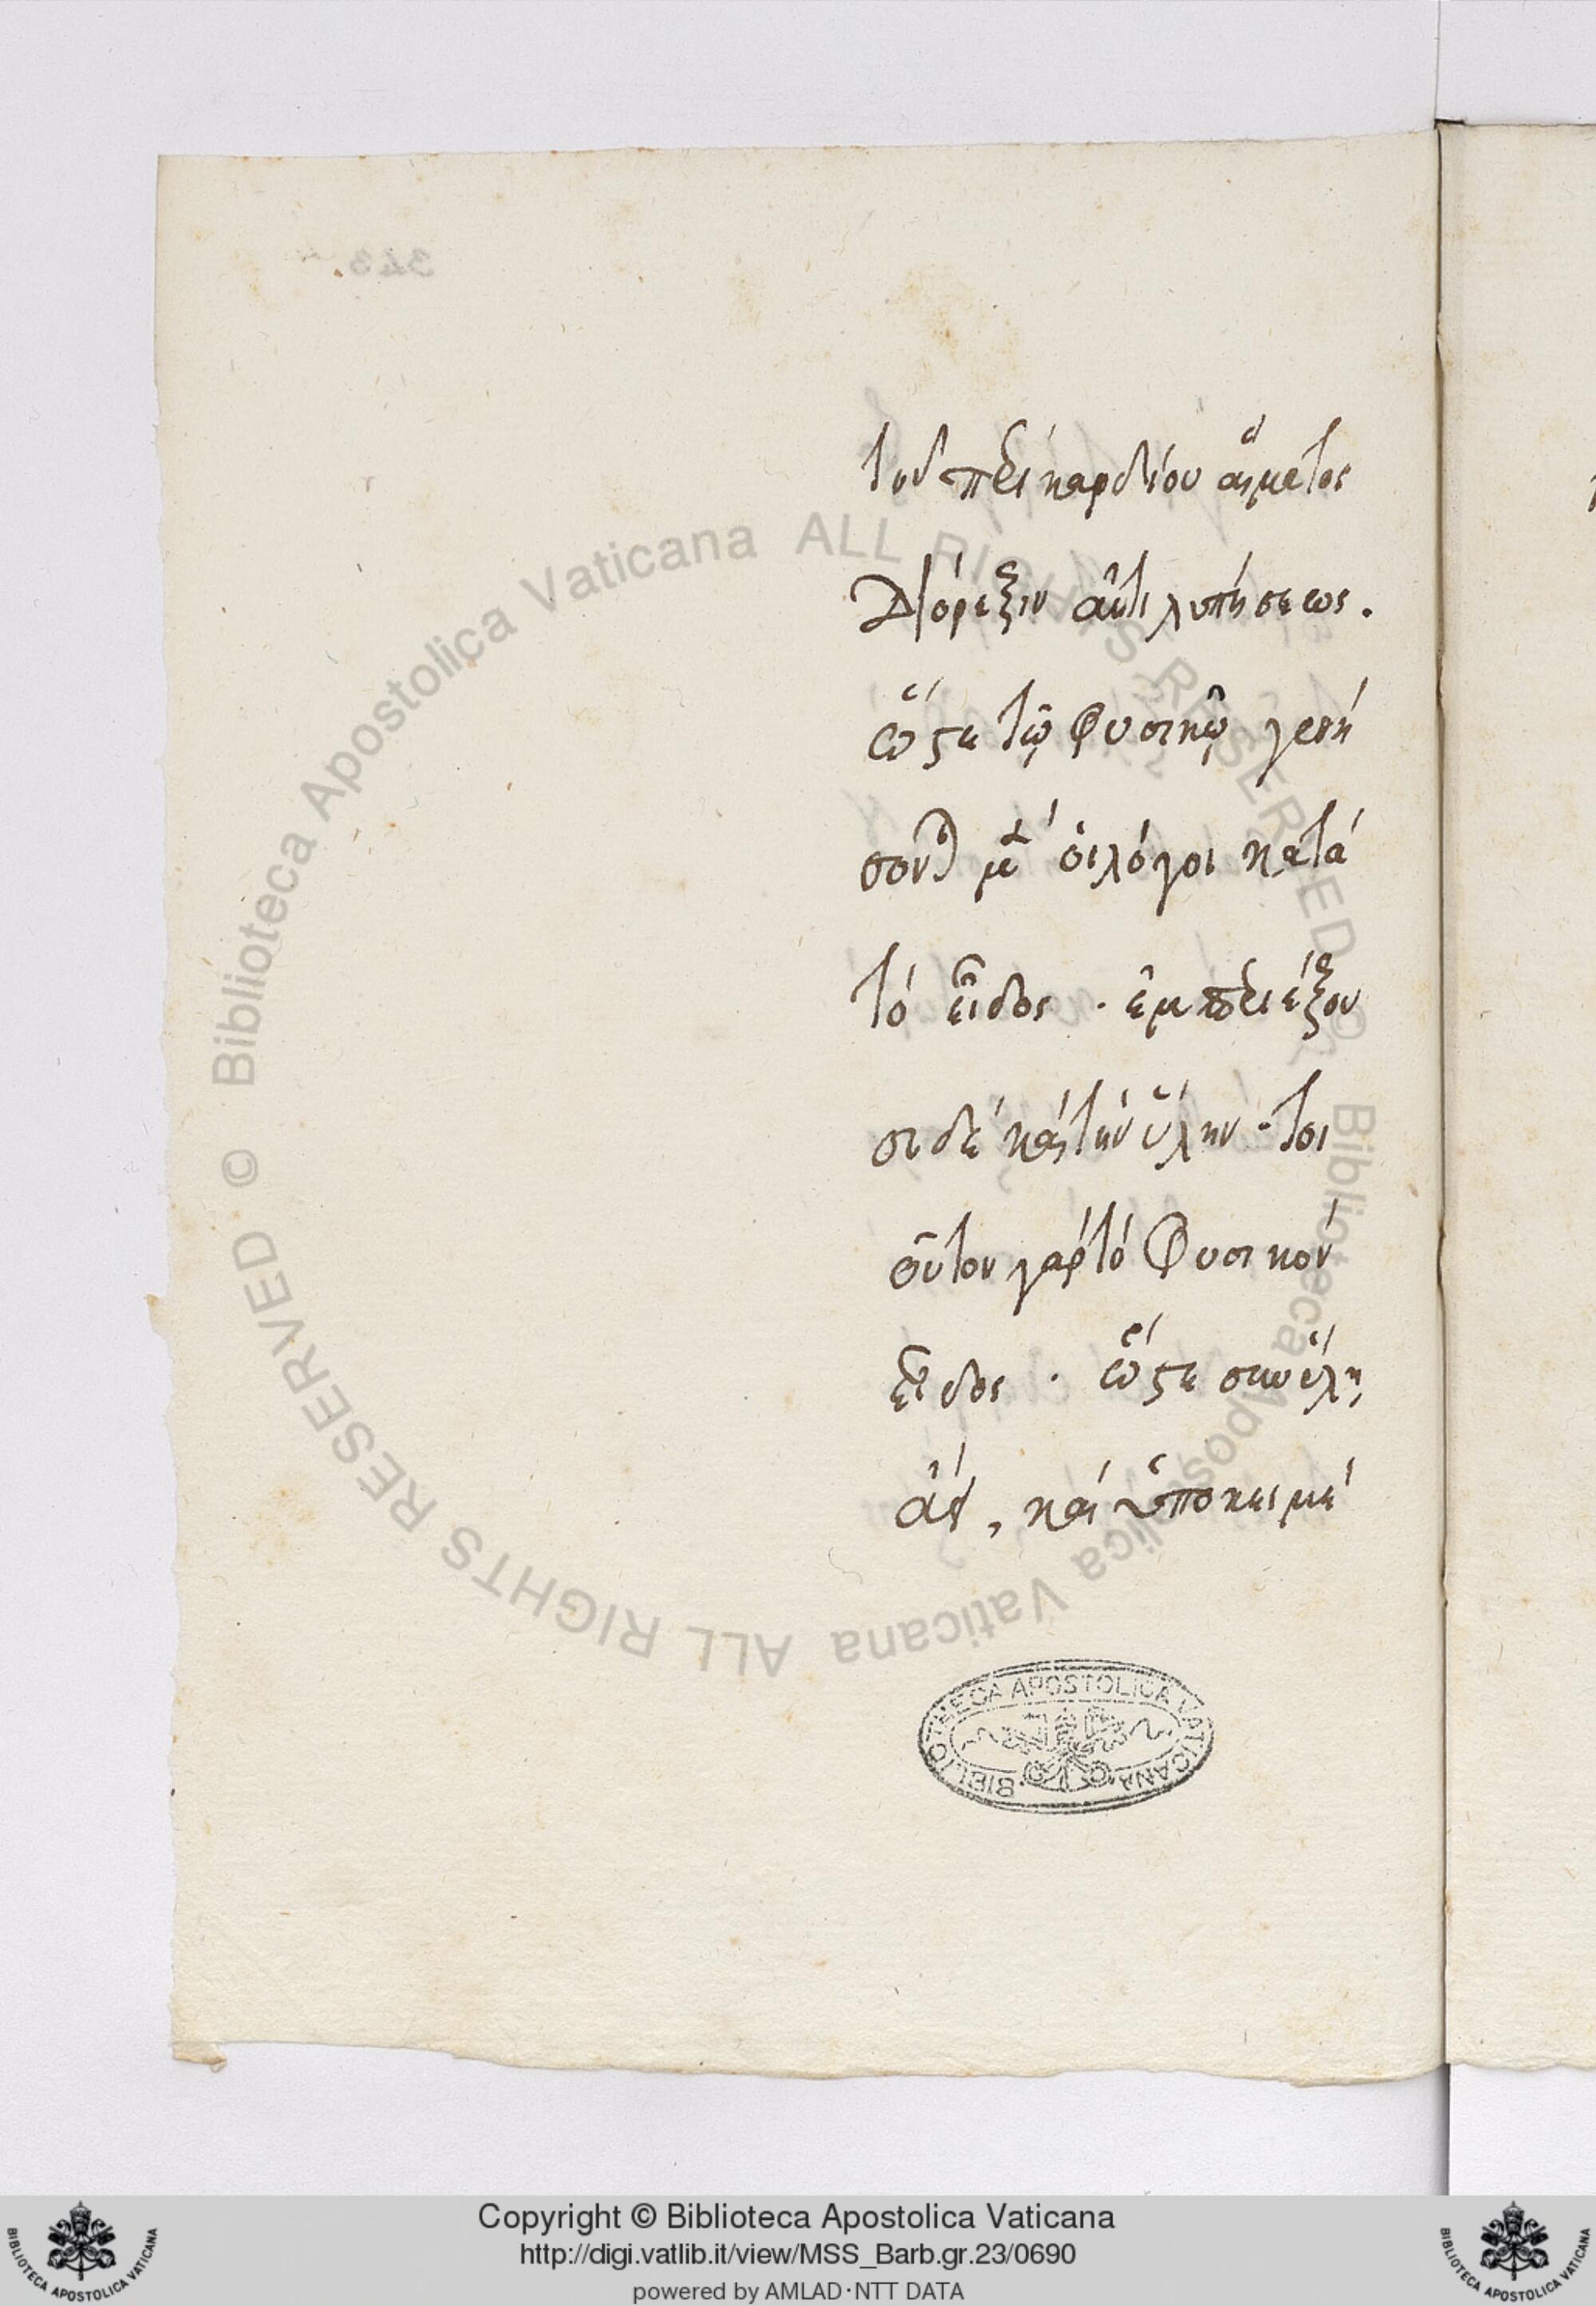 343
τοῦ περικαρδίου αἵματος
δι' ὄρεξιν ἀντιλυπήσεως.
ὥστε τῷ φυσικῷ γενή
σονται μὲν οἱ λόγοι κατὰ
τὸ εἶδος · ἐμπεριέξου
σι δὲ καὶ τὴν ὕλην · τοι
οῦτον γὰρ τὸ φυσικὸν
εἶδος · ὥστε σὺν ὕλῃ
, καὶ ὑποκειμέ
BIBLIOTHECA APOSTOLICA VATICANA
© Biblioteca Apostolica Vaticana ALL RIGHTS RESERVED
© Biblioteca Apostolica Vaticana ALL RIGHTS RESERVED
Copyright © Biblioteca Apostolica Vaticana
http://digi.vatlib.it/view/MSS_Barb.gr.23/0690
powered by AMLAD·NTT DATA
BIBLIOTECA APOSTOLICA VATICANA
BIBLIOTECA APOSTOLICA VATICANA